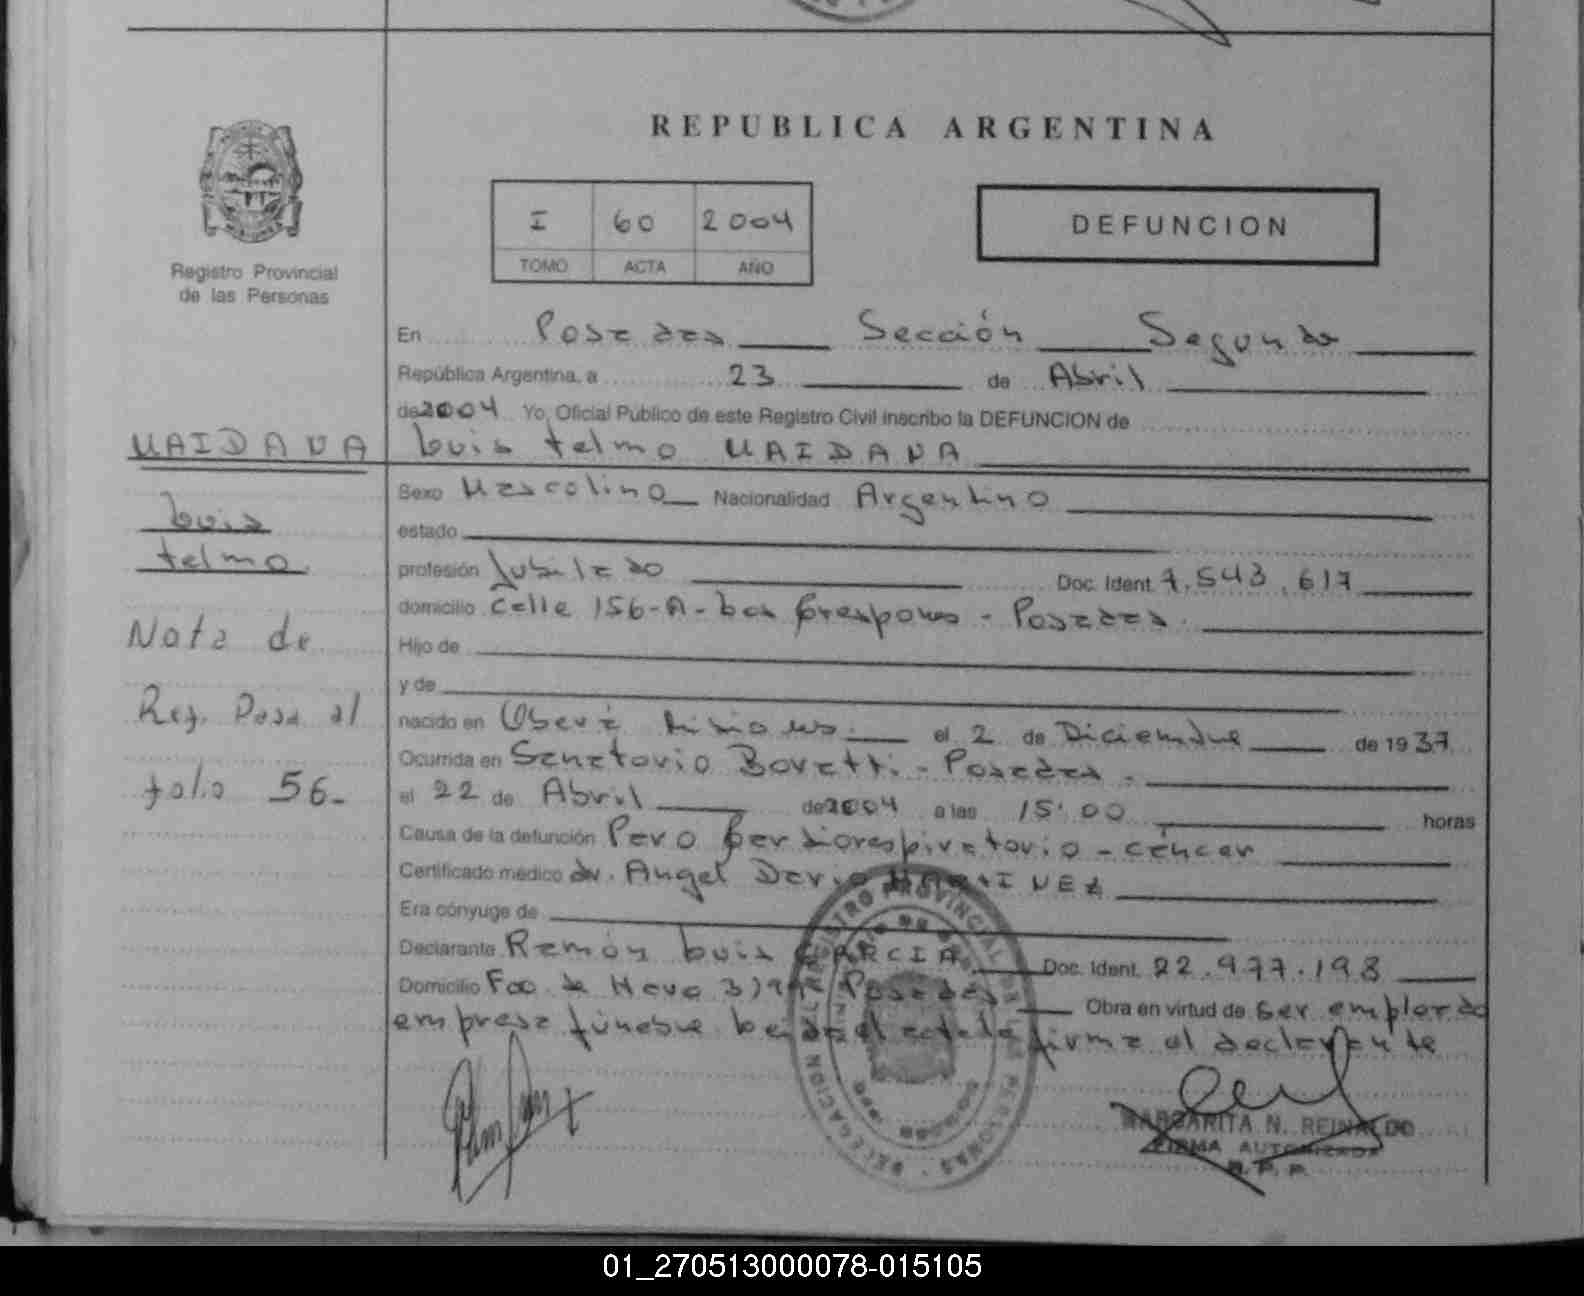 REPUBLICA ARGENTINA
I 60 2004
TOMO ACTA AÑO
DEFUNCION
Registro Provincial
de las Personas
En Posadas Sección Segunda
República Argentina, a 23 de Abril
de 2004 Yo, Oficial Público de este Registro Civil inscribo la DEFUNCION de
MAIDANA Luis telmo MAIDANA
Sexo Masculino Nacionalidad Argentino
Luis
estado
telmo
profesión Jubilado Doc. Ident. 7.543.617
domicilio Calle 156-A- Posadas.
Nota de
Hijo de
y de
Ref. Pasa al
nacido en Oberá Misiones el 2 de Diciembre de 1937
Ocurrida en Sanatorio Boratti - Posadas -
folio 56-
el 22 de Abril de 2004 a las 15:00 horas
Causa de la defunción Paro Cardiorespiratorio - cáncer
Certificado médico dr. Angel Dario MARTINEZ
Era cónyuge de
Declarante Ramón Luis GARCIA Doc. Ident. 22.977.198
Domicilio Fco de Haro Posadas Obra en virtud de ser empleado
empresa fúnebre leída el acta la firma el declarante
REGISTRO PROVINCIAL DE LAS PERSONAS
DELEGACION
MARGARITA N. REINALDO
FIRMA AUTORIZADA
R. P. P.
01_270513000078-015105